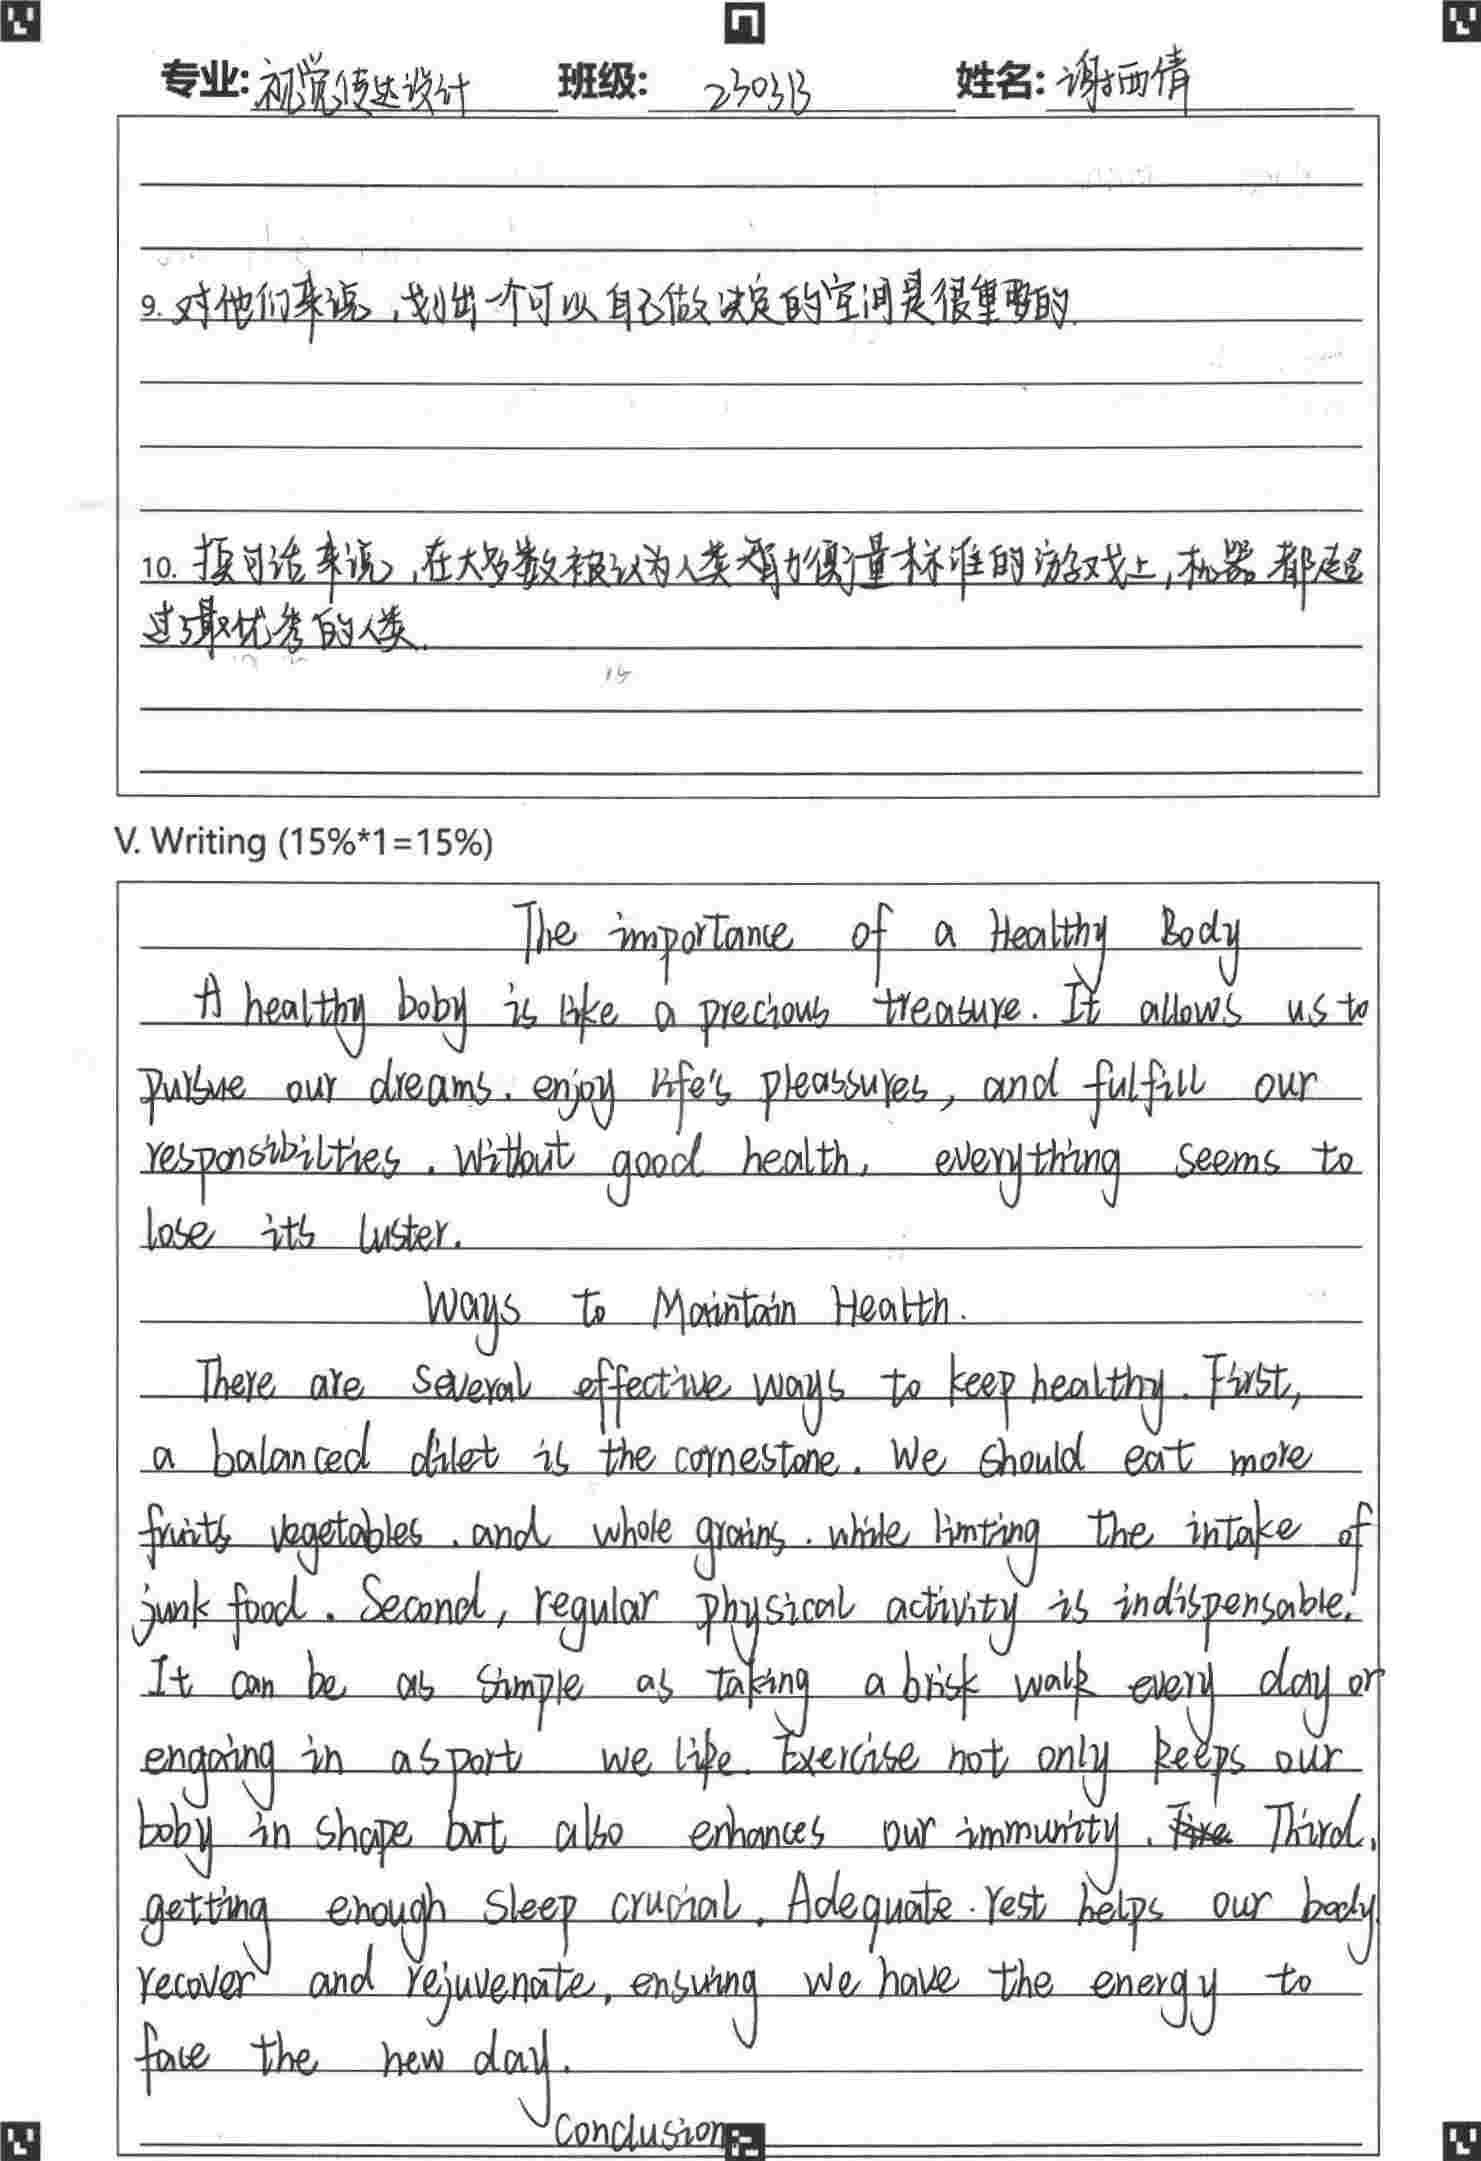 专业: 视觉传达设计 班级: 2303B 姓名: 谢栖倩
9. 对他们来说,划出一个可以自己做决定的空间是很重要的.
10. 换句话来说,在大多数被认为人类智力衡量标准的游戏上,机器都超
过了最优秀的人类.
V. Writing (15%*1=15%)
The importance of a Healthy Body
A healthy boby is like a precious treasure. It allows us to
pursue our dreams. enjoy life's pleassures, and fulfill our
responsibilties. Without good health, everything seems to
lose its luster.
Ways to Maintain Health.
There are several effective ways to keep healthy. First,
a balanced dilet is the cornestone. We should eat more
fruits vegetables. and whole grains. while limting the intake of
junk food. Second, regular physical activity is indispensable.
It can be as simple as taking a brisk walk every day or
engaing in a sport we like. Exercise not only keeps our
boby in shape but also enhances our immunity. Third.
getting enough sleep crucial. Adequate. rest helps our body
recover and rejuvenate, ensuing we have the energy to
face the new day.
Conclusion